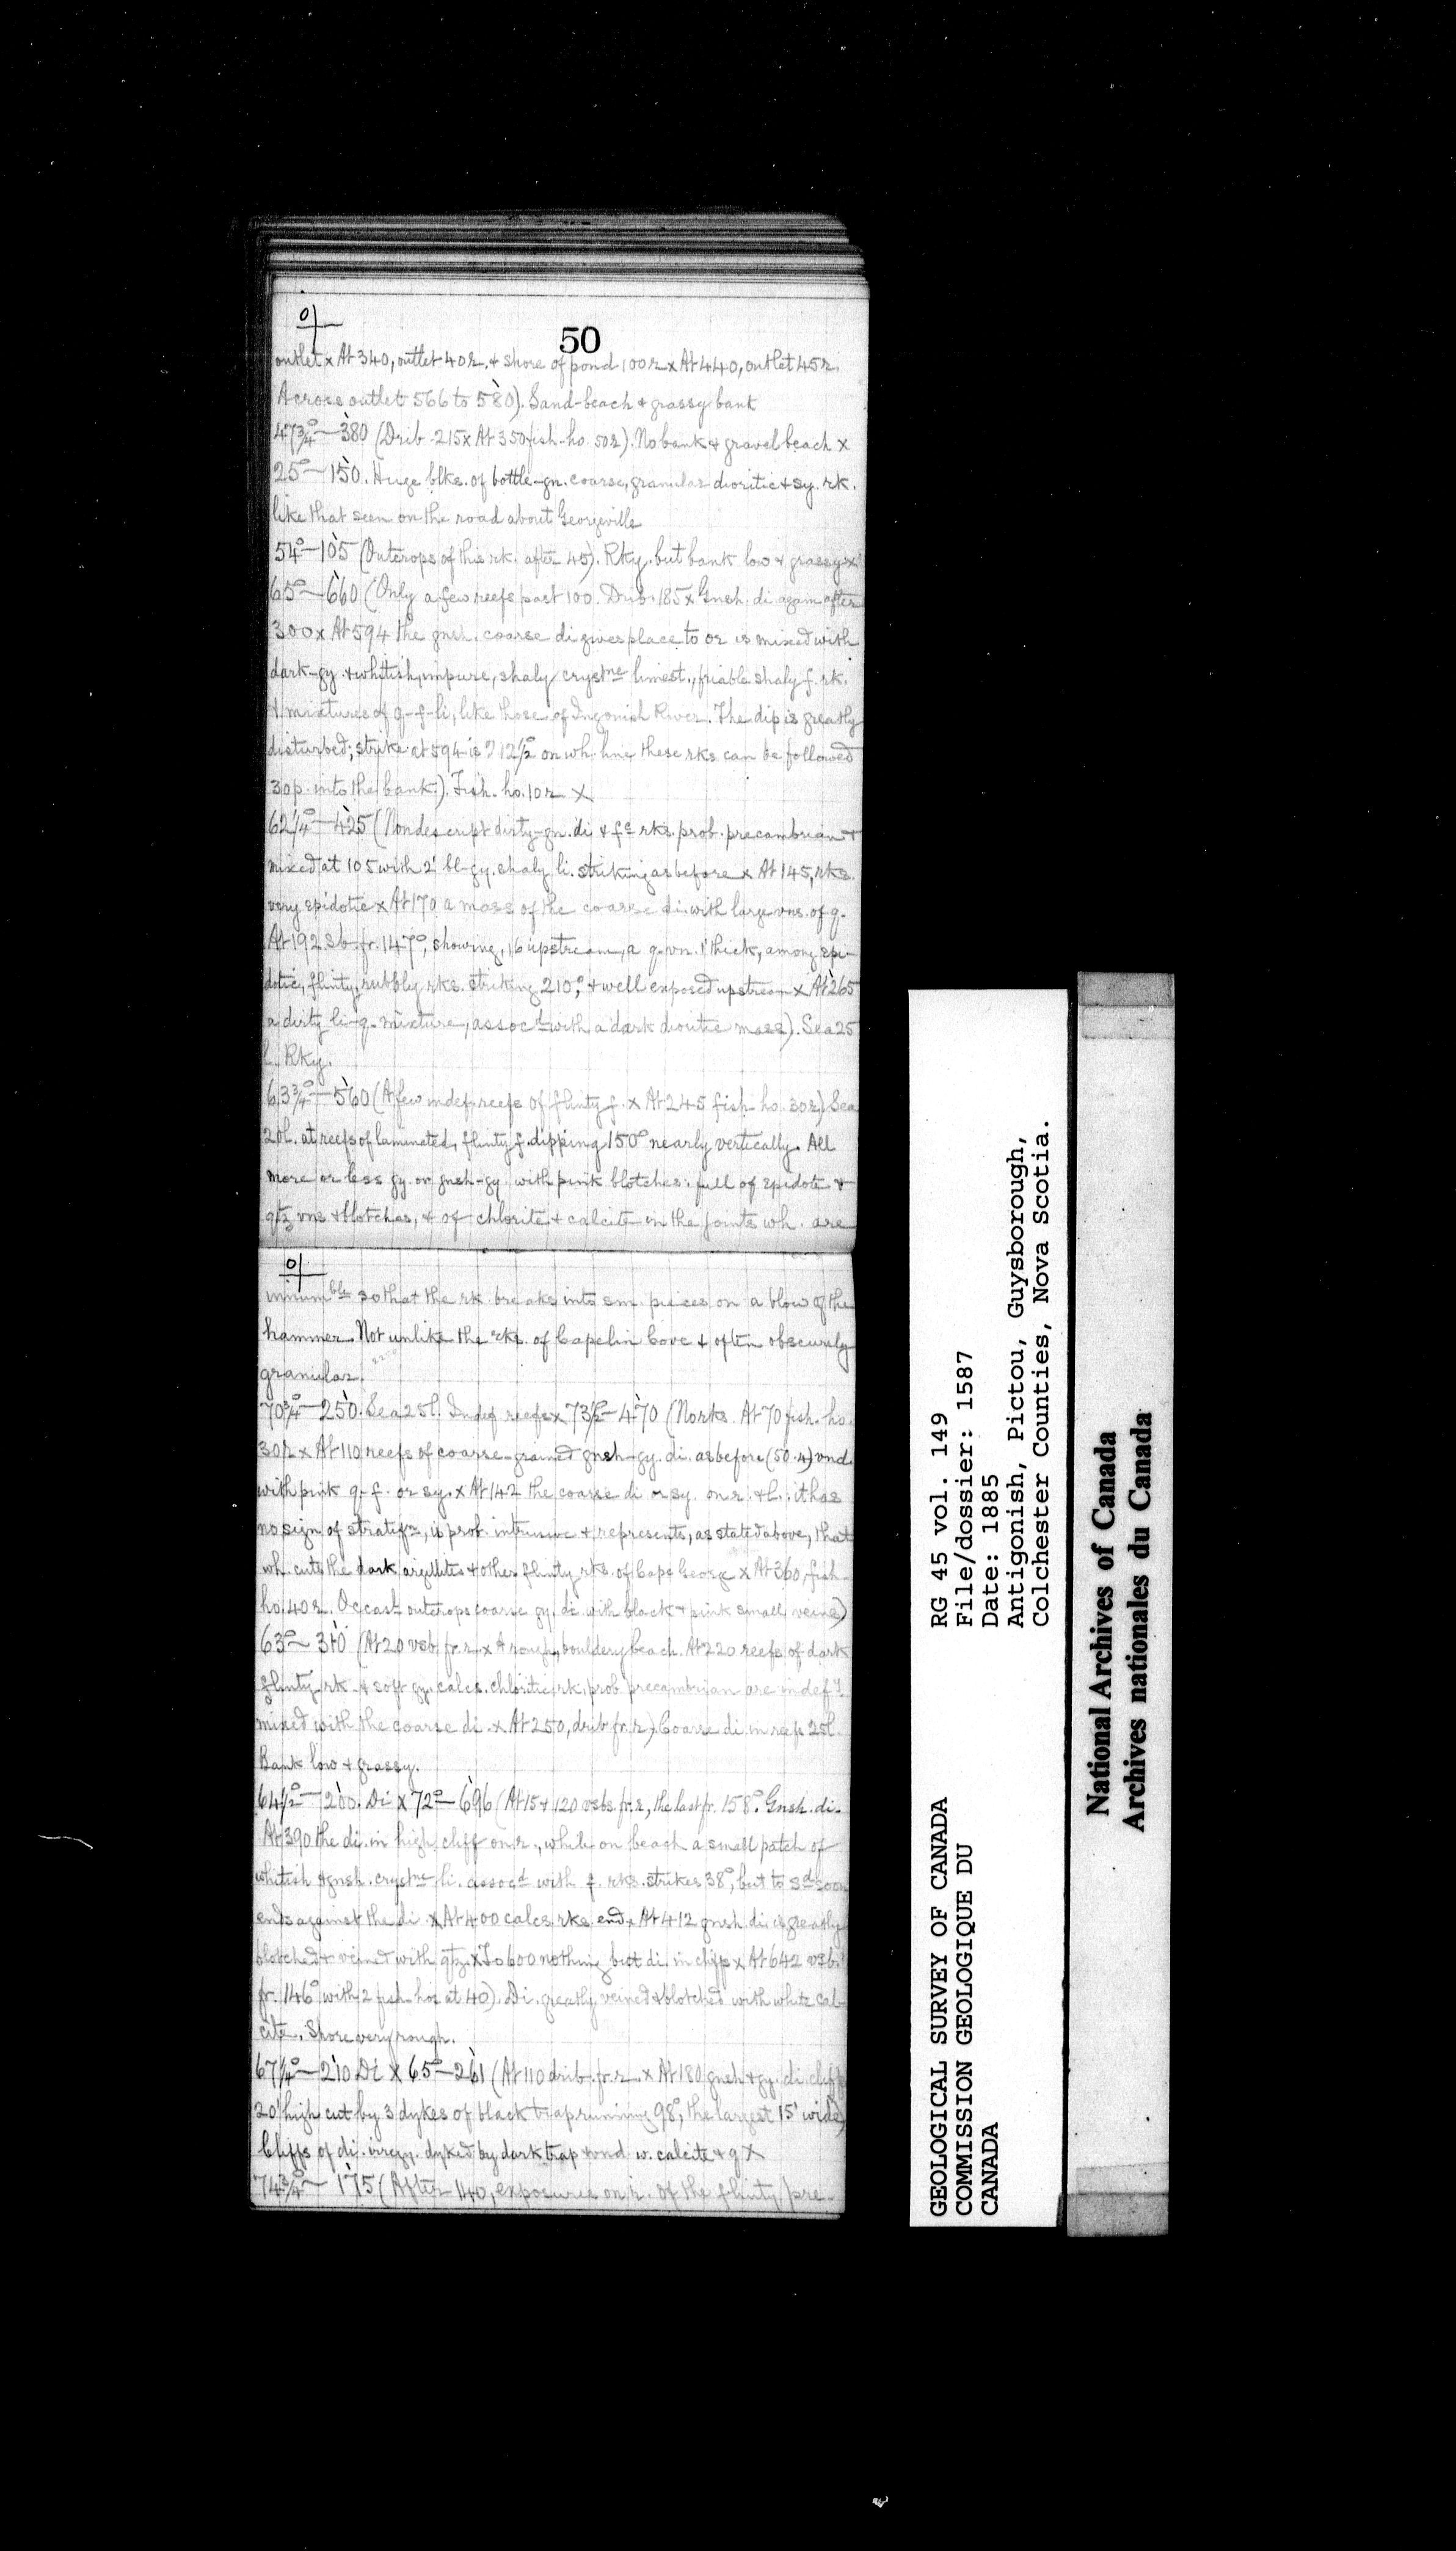 50
outlet x At 340, outlet 40 r. & shore of pond 100 r x At 440, outlet 45 r.
Across outlet 566 to 580). Sand-beach & grassy bank
47¾° — 380 (Drib. 215 x At 350 fish-ho. 50 r). No bank & gravel beach x
25° — 150. Huge blks. of bottle-gn. coarse, granular dioritic & sy. rk.
like that seen on the road about Georgeville
54° — 105 (Outcrops of this rk. after 45). Rky. but bank low & grassy x
65° — 660 (Only a few reefs past 100. Drib. 185 x Gnsh. di again after
300 x At 594 the gnsh. coarse di gives place to or is mixed with
dark-gy. & whitish, impure, shaly crystne limest., friable shaly f. rk.
& mixtures of q-f-li, like those of Ingonish River. The dip is greatly
disturbed; strike at 594 is ? 12½° on wh. line these rks. can be followed
30 p. into the bank). Fish-ho. 10 r X
62¼° — 425 (Nondescript dirty-gn. di & fc rks. prob. precambrian &
mixed at 105 with 2' bl-gy. shaly li. striking as before x At 145, rks.
very epidotic x At 170 a mass of the coarse di. with large vns. of q.
At 192 sb. fr. 147°, showing, 16 upstream, a q. vn. 1' thick, among epi-
dotic, flinty, rubbly rks. striking 210°, & well exposed upstream x At 265
a dirty li-q. mixture, assocd with a dark dioritic mass). Sea 25
l. Rky.
63¾° — 560 (A few indef. reefs of flinty f. x At 245 fish-ho. 30 r). Sea
20 l. at reefs of laminated, flinty f. dipping 150° nearly vertically. All
more or less gy. or gnsh-gy with pink blotches: full of epidote &
qtz vns & blotches, & of chlorite & calcite in the joints wh. are
innumble so that the rk. breaks into sm. pieces on a blow of the
hammer. Not unlike the rks. of Capelin Cove & often obscurely
granular.
70¾° — 250. Sea 25 l. Indef. reefs x 73½° — 470 (No rks. At 70 fish-ho.
30 r x At 110 reefs of coarse-grained gnsh-gy. di. as before (50.4) vnd.
with pink q-f. or sy. x At 142 the coarse di or sy. on r. & l.: it has
no sign of stratifn, is prob. intrusive & represents, as stated above, that
wh. cuts the dark argillites & other flinty rks. of Cape George x At 360, fish-
ho. 40 r. Occasl outcrops coarse gy. di. with black & pink small veins)
63° — 310. (At 20 vsb. fr. r. x A rough, bouldery beach. At 220 reefs of dark
flinty rk. & soft gy. calcs. chloritic rk. prob precambrian are indefly
mixed with the coarse di. x At 250, drib. fr. r.) Coarse di in reefs 25 l.
Bank low & grassy.
64½° — 200. Di x 72° — 696 (At 15 & 120 vsbs. fr. r, the last fr. 158°. Gnsh. di.
At 390 the di. in high cliff on r., while on beach a small patch of
whitish & gnsh. crystne li. assocd with f. rks. strikes 38°, but to sd soon
ends against the di x At 400 calcs. rks. end x At 412 gnsh. di. is greatly
blotched & veined with qtz. x To 600 nothing but di. in cliff x At 642 vsb.
fr. 146° with 2 fish-hos at 40). Di. greatly veined & blotched with white cal-
cite. Shore very rough.
67¼° — 210 Di X 65° — 261 (At 110 drib. fr. r. x At 180 gnsh & gy. di. cliffs
20' high cut by 3 dykes of black trap running 98°, the largest 15' wide)
Cliffs of di. irregy. dyked by dark trap & vnd. w. calcite & q X
74¾° — 175 (After 140, exposures on r. of the flinty pre-
RG 45 vol. 149
File/dossier: 1587
Date: 1885
Antigonish, Pictou, Guysborough,
Colchester Counties, Nova Scotia.
GEOLOGICAL SURVEY OF CANADA
COMMISSION GEOLOGIQUE DU
CANADA
National Archives of Canada
Archives nationales du Canada